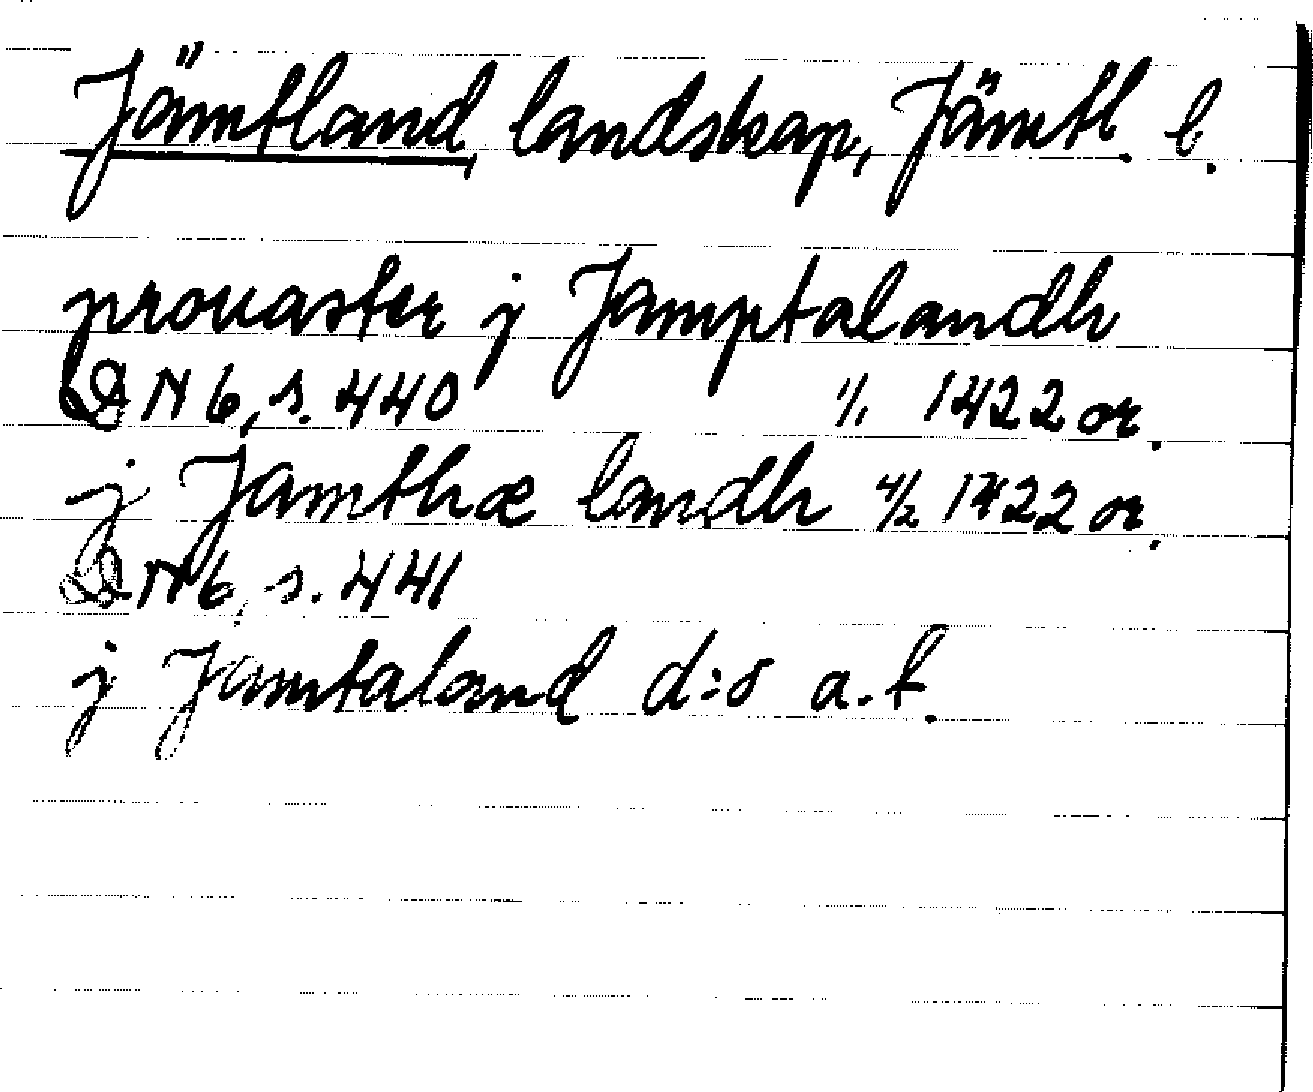 Jämtland, landskap, Jämtl. l.
prouaster j Jamptalandh
DN 6, s. 440 1/1 1422 or.
j Jamthæ landh 4/2 1422 or.
DN 6, s. 441
j Jamtaland d:o a.t.